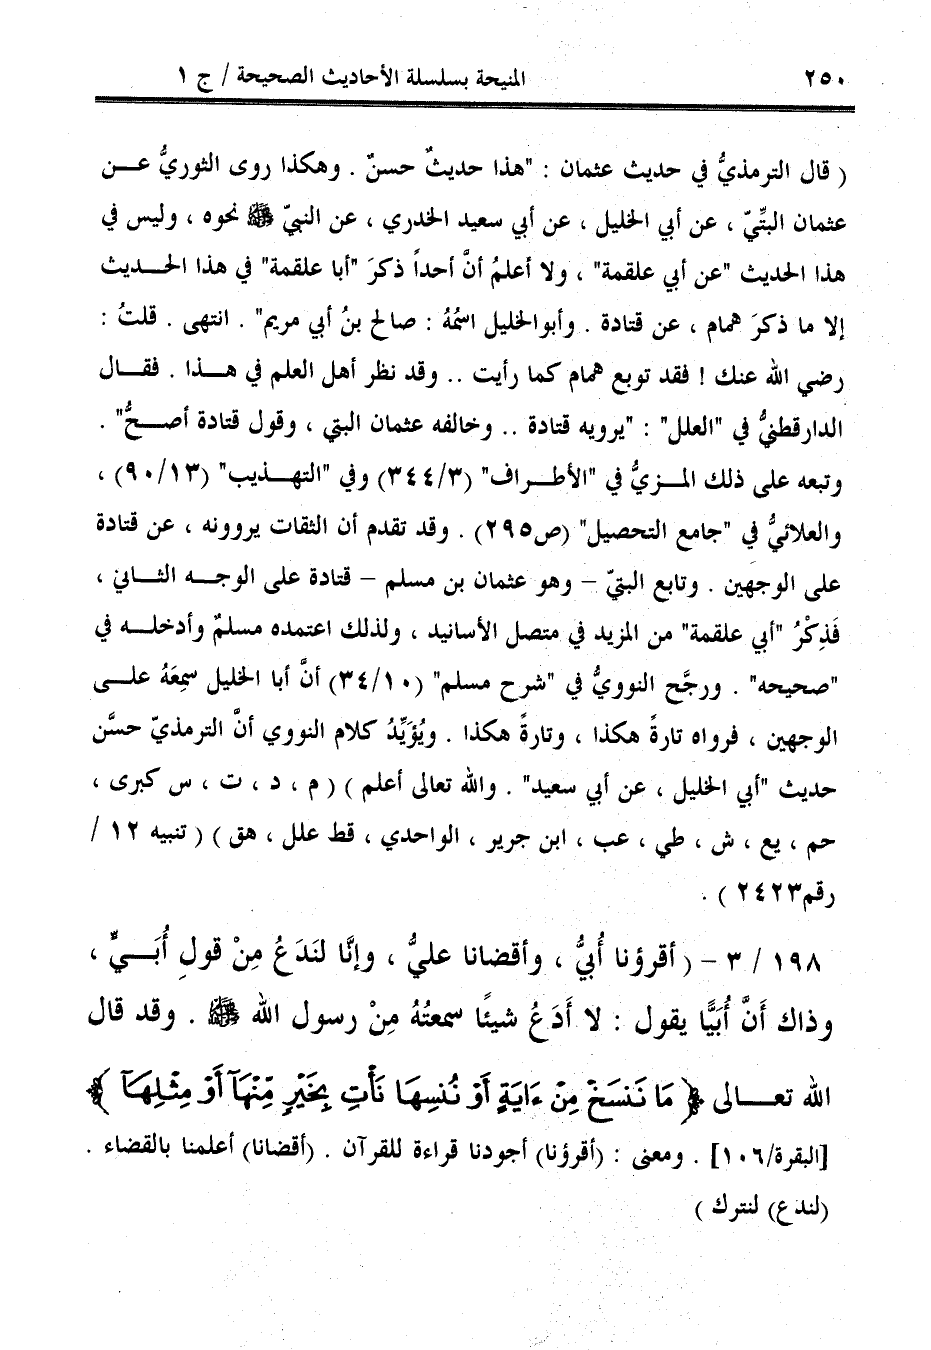 ٢٥٠ المنيحة بسلسلة الأحاديث الصحيحة / ج ١
( قال الترمذيُّ في حديث عثمان : "هذا حديثٌ حسنٌ . وهكذا روى الثوريُّ عـــن
عثمان البتِّيّ ، عن أبي الخليل ، عن أبي سعيد الخدري ، عن النبيّ ﷺ نحوه ، وليس في
هذا الحديث "عن أبي علقمة" ، ولا أعلمُ أنَّ أحداً ذكرَ "أبا علقمة" في هذا الحـــديث
إلا ما ذكرَ همام ، عن قتادة . وأبوالخليل اسمُهُ : صالح بنُ أبي مريم" . انتهى . قلتُ :
رضي الله عنك ! فقد توبع همام كما رأيت .. وقد نظر أهل العلم في هـــذا . فقـــال
الدارقطنيُّ في "العلل" : "يرويه قتادة .. وخالفه عثمان البتي ، وقول قتادة أصـــحُّ" .
وتبعه على ذلك المـــزيُّ في "الأطـــراف" (٣٤٤/٣) وفي "التهـــذيب" (٩٠/١٣) ،
والعلائيُّ في "جامع التحصيل" (ص٢٩٥) . وقد تقدم أن الثقات يروونه ، عن قتادة
على الوجهين . وتابع البتيّ – وهو عثمان بن مسلم – قتادة على الوجـــه الثـــاني ،
فَذِكْرُ "أبي علقمة" من المزيد في متصل الأسانيد ، ولذلك اعتمده مسلمٌ وأدخلـــه في
"صحيحه" . ورجَّح النوويُّ في "شرح مسلم" (٣٤/١٠) أنَّ أبا الخليل سمِعَهُ علـــى
الوجهين ، فرواه تارةً هكذا ، وتارةً هكذا . ويُؤَيِّدُ كلام النووي أنَّ الترمذيّ حسَّن
حديث "أبي الخليل ، عن أبي سعيد" . والله تعالى أعلم ) ( م ، د ، ت ، س كبرى ،
حم ، يع ، ش ، طي ، عب ، ابن جرير ، الواحدي ، قط علل ، هق ) ( تنبيه ١٢ /
رقم٢٤٢٣ ) .
١٩٨ / ٣ – ( أقرؤنا أُبيُّ ، وأقضانا عليُّ ، وإنَّا لنَدَعُ مِنْ قولِ أُبَـــيٍّ ،
وذاك أَنَّ أُبَيًّا يقول : لا أَدَعُ شيئًا سمعتُهُ مِنْ رسول الله ﷺ . وقد قال
الله تعـــالى ﴿ مَا نَنسَخْ مِنْ ءَايَةٍ أَوْ نُنسِهَا نَأْتِ بِخَيْرٍ مِّنْهَآ أَوْ مِثْلِهَآ ﴾
[البقرة/١٠٦] . ومعنى : (أقرؤنا) أجودنا قراءة للقرآن . (أقضانا) أعلمنا بالقضاء .
(لندع) لنترك )